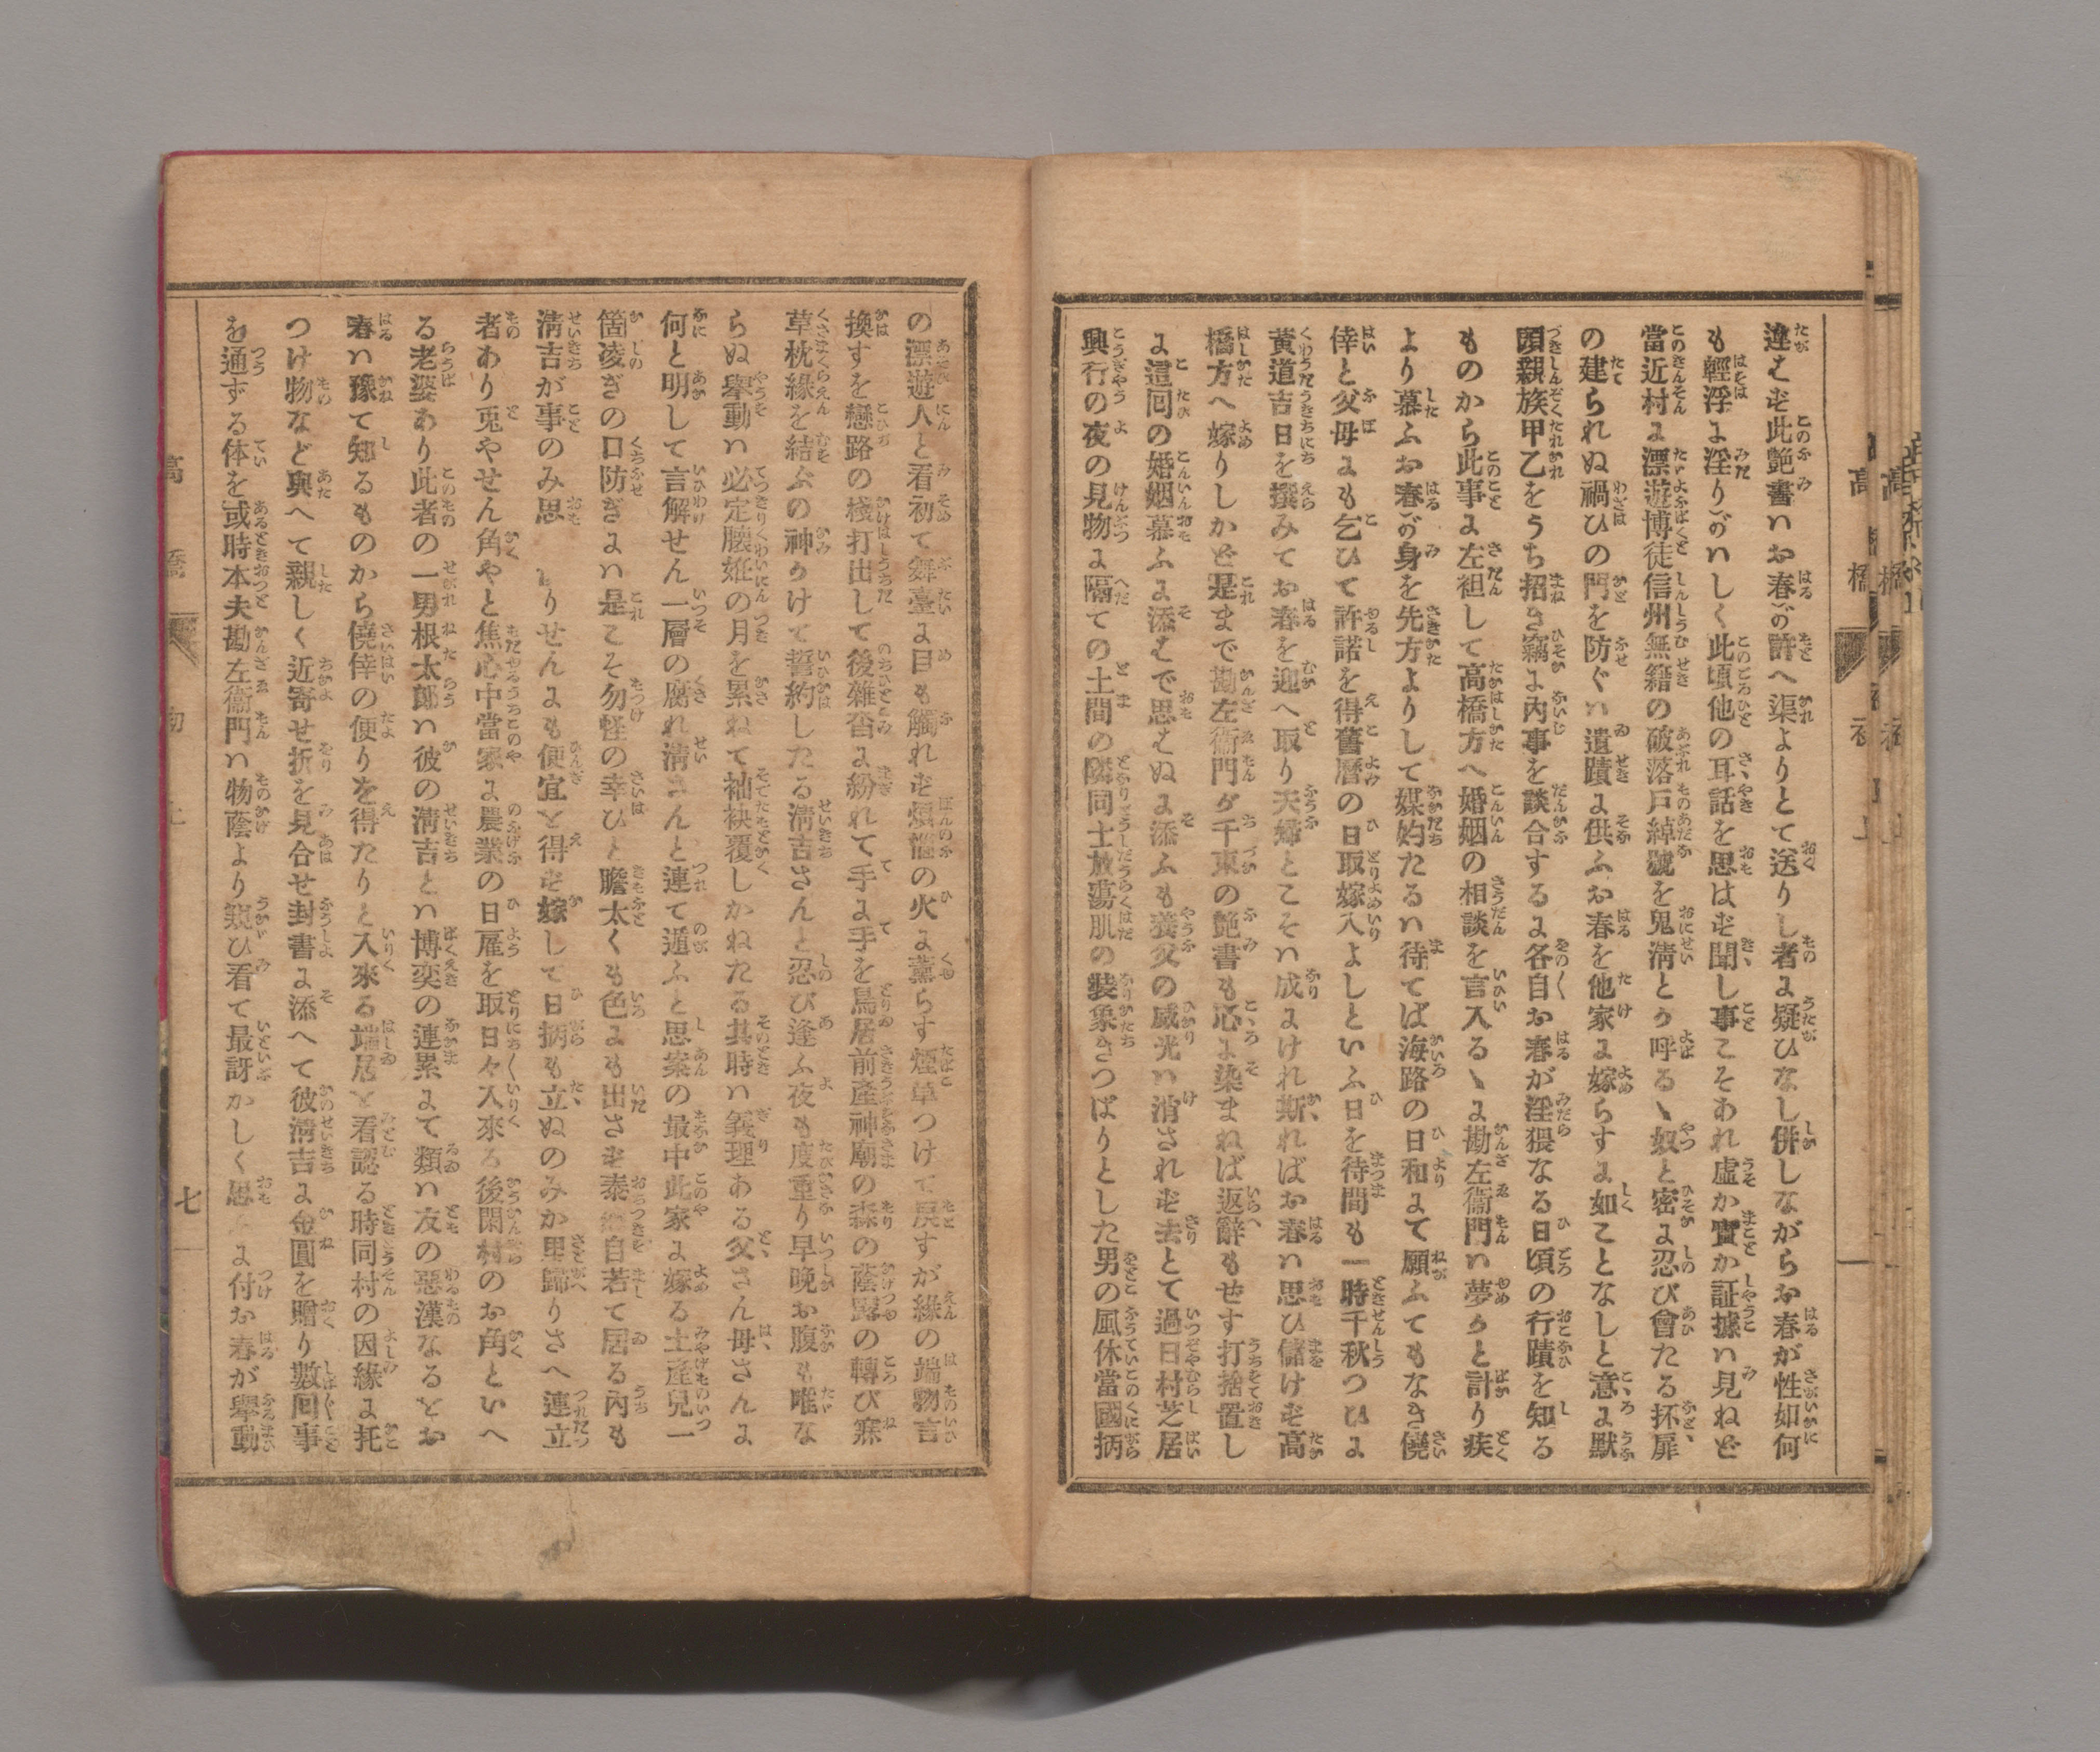 違はも此艶書ハお春が許へ渠よりとて送りし者に疑ひなし併しながらお春が性如何
も輕浮に淫りがハしく此頃他の耳話を思はも聞し事こそあれ虚か實か証據ハ見ねど
當近村に漂遊博徒信州無籍の破落戸綽號を鬼淸とか呼るゝ奴と密に忍び會たる抔扉
の建られぬ禍ひの門を防ぐハ遺蹟に供ふお春を他家に嫁らすに如ことなしと意に默
頭親族甲乙をうち招き竊に內事を談合するに各自お春が淫猥なる日頃の行蹟を知る
ものから此事に左袒して高橋方へ婚姻の相談を言入るゝに勘左衞門ハ夢かと計り疾
より慕ふお春が身を先方よりして媒妁たるハ待てば海路の日和にて願ふてもなき僥
倖と父母にも乞ひて許諾を得舊曆の日取嫁入よしといふ日を待間も一時千秋つひに
黄道吉日を撰みてお春を迎へ取り夫婦とこそハ成にけれ斯ればお春ハ思ひ儲けも高
橋方へ嫁りしかど是まで勘左衞門が千束の艶書も心に染まねば返辭もせす打捨置し
に這回の婚姻慕ふに添はで思はぬに添ふも養父の威光ハ消されも去とて過日村芝居
興行の夜の見物に隔ての土間の隣同士放蕩肌の裝象きつぱりとした男の風休當國柄
の漂遊人と看初て舞臺に目も觸れも煩惱の火に薰らす煙草つけて戾すが緣の端物言
換すを戀路の棧打出して後雜沓に紛れて手に手を鳥居前產神廟の森の蔭露の轉び寐
草枕緣を結ぶの神かけて誓約したる淸吉さんと忍び逢ふ夜も度重り早晩お腹も唯な
らぬ擧動ハ必定懷姙の月を累ねて袖袂覆しかねたる其時ハ義理ある父さん母さんに
何と明して言解せん一層の腐れ淸さんと連て遁ふと思案の最中此家に嫁る土產兒一
箇凌ぎの口防ぎにハ是こそ勿怪の幸ひと膽太くも色にも出さも泰然自若て居る內も
淸吉が事のみ思りせんにも便宜を得も嫁して日柄も立ぬのみか里歸りさへ連立
者あり兎やせん角やと焦心中當家に農業の日雇を取日々入來る後閑村のお角といへ
る老婆あり此者の一男根太郎ハ彼の淸吉とハ博奕の連累にて類ハ友の惡漢なるをお
春ハ豫て知るものから僥倖の便りを得たりと入來る端居を看認る時同村の因緣に托
つけ物など與へて親しく近寄せ折を見合せ封書に添へて彼淸吉に金圓を贈り數回事
を通ずる体を或時本夫勘左衞門ハ物蔭より窺ひ看て最訝かしく思ふに付お春が擧動
七